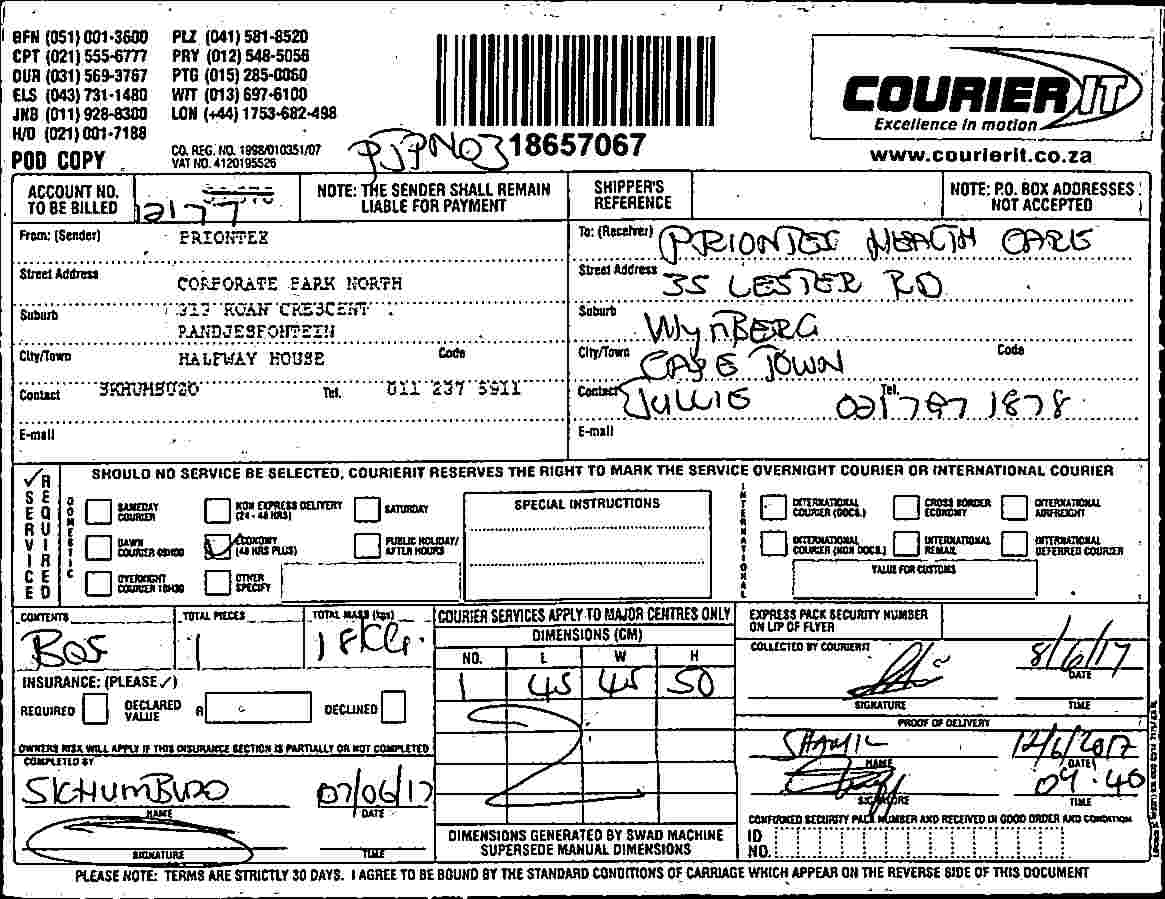 BFN (051) 001-3600 PLZ (041) 581-8520
CPT (021) 555-6777 PRY (012) 548-5056
DUR (031) 569-3767 PTG (015) 285-0060
ELS (043) 731-1480 WIT (013) 697-6100
JNB (011) 928-8300 LON (+44) 1753-682-498
H/O (021) 001-7188
POD COPY
CO. REG. NO. 1998/010351/07
VAT NO. 4120195526
PJPN03
18657067
COURIER IT
Excellence in motion
www.courierit.co.za
ACCOUNT NO. TO BE BILLED 12177
NOTE: THE SENDER SHALL REMAIN LIABLE FOR PAYMENT
SHIPPER'S REFERENCE
NOTE: P.O. BOX ADDRESSES NOT ACCEPTED
From: (Sender) PRIONTEX
Street Address CORPORATE PARK NORTH
Suburb 313 ROAN CRESCENT
RANDJESFONTEIN
City/Town HALFWAY HOUSE Code
Contact SKHUMBUZO Tel. 011 237 5911
E-mail
To: (Receiver) PRIONTEX HEALTH CARE
Street Address 35 LESTER RD
Suburb WynBERG
City/Town CAPE TOWN Code
Contact JULLIE Tel. 021 797 1878
E-mail
✓ SERVICE REQUIRED
SHOULD NO SERVICE BE SELECTED, COURIERIT RESERVES THE RIGHT TO MARK THE SERVICE OVERNIGHT COURIER OR INTERNATIONAL COURIER
DOMESTIC
SAMEDAY COURIER
NON EXPRESS DELIVERY (24 - 48 HRS)
SATURDAY
DAWN COURIER 09H00
✓ ECONOMY (48 HRS PLUS)
PUBLIC HOLIDAY/ AFTER HOURS
OVERNIGHT COURIER 10H30
OTHER SPECIFY
SPECIAL INSTRUCTIONS
INTERNATIONAL
INTERNATIONAL COURIER (DOCS.)
CROSS BORDER ECONOMY
INTERNATIONAL AIRFREIGHT
INTERNATIONAL COURIER (NON DOCS.)
INTERNATIONAL REMAIL
INTERNATIONAL DEFERRED COURIER
VALUE FOR CUSTOMS
CONTENTS
TOTAL PIECES 1
TOTAL MASS (kgs)
INSURANCE: (PLEASE ✓)
REQUIRED
DECLARED VALUE R
DECLINED
OWNERS RISK WILL APPLY IF THIS INSURANCE SECTION IS PARTIALLY OR NOT COMPLETED
COMPLETED BY
SKHUMBUZO 07/06/17
NAME DATE
SIGNATURE TIME
COURIER SERVICES APPLY TO MAJOR CENTRES ONLY
DIMENSIONS (CM)
NO. L W H
1 45 45 50
DIMENSIONS GENERATED BY SWAD MACHINE SUPERSEDE MANUAL DIMENSIONS
EXPRESS PACK SECURITY NUMBER ON LIP OF FLYER
COLLECTED BY COURIERIT 8/6/17
DATE
SIGNATURE TIME
PROOF OF DELIVERY
SHAMIL 12/6/2017
NAME DATE
09:40
SIGNATURE TIME
CONFIRMED SECURITY PACK NUMBER AND RECEIVED IN GOOD ORDER AND CONDITION
ID NO.
PLEASE NOTE: TERMS ARE STRICTLY 30 DAYS. I AGREE TO BE BOUND BY THE STANDARD CONDITIONS OF CARRIAGE WHICH APPEAR ON THE REVERSE SIDE OF THIS DOCUMENT